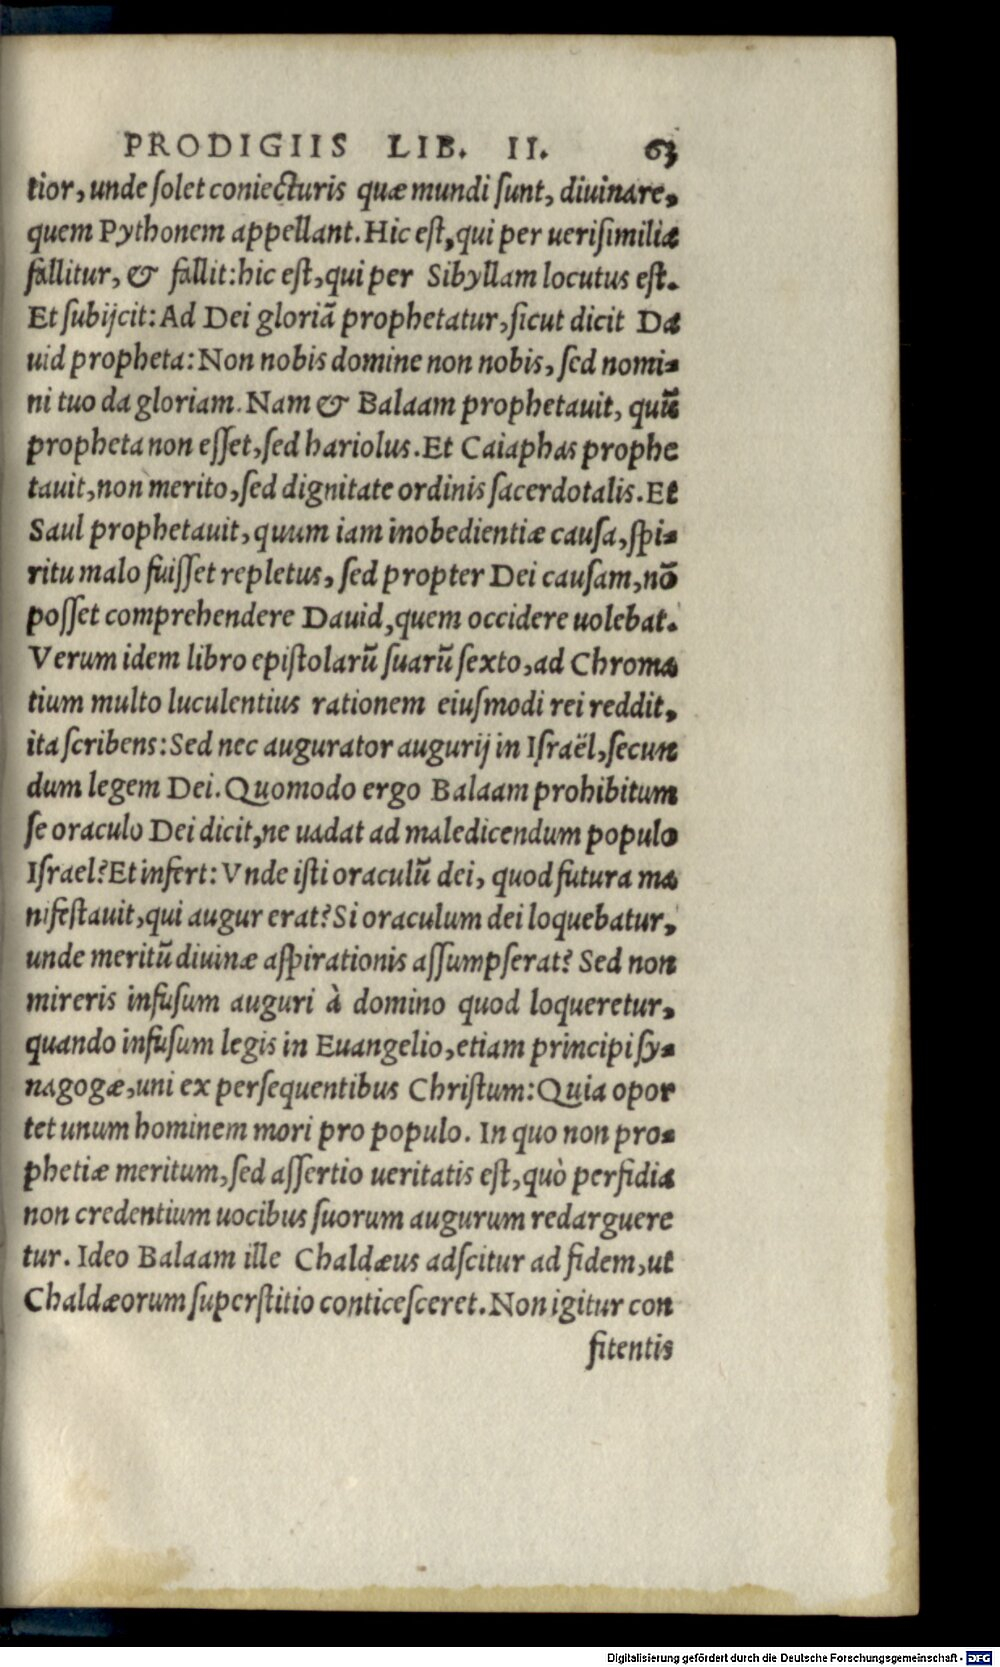 PRODIGIIS LIB. II. 63
tior, unde solet coniecturis quæ mundi sunt, diuinare,
quem Pythonem appellant. Hic est, qui per uerisimilia
fallitur, & fallit: hic est, qui per Sibyllam locutus est.
Et subijcit: Ad Dei gloriã prophetatur, sicut dicit Da
uid propheta: Non nobis domine non nobis, sed nomi-
ni tuo da gloriam. Nam & Balaam prophetauit, quũ
propheta non esset, sed hariolus. Et Caiaphas prophe
tauit, non merito, sed dignitate ordinis sacerdotalis. Et
Saul prophetauit, quum iam inobedientiæ causa, spi-
ritu malo fuisset repletus, sed propter Dei causam, nõ
posset comprehendere Dauid, quem occidere uolebat.
Verum idem libro epistolarũ suarũ sexto, ad Chroma
tium multo luculentius rationem eiusmodi rei reddit,
ita scribens: Sed nec augurator augurij in Israël, secun
dum legem Dei. Quomodo ergo Balaam prohibitum
se oraculo Dei dicit, ne uadat ad maledicendum populo
Israel? Et infert: Vnde isti oraculũ dei, quod futura ma
nifestauit, qui augur erat? Si oraculum dei loquebatur,
unde meritũ diuinæ aspirationis assumpserat? Sed non
mireris infusum auguri à domino quod loqueretur,
quando infusum legis in Euangelio, etiam principi sy-
nagogæ, uni ex persequentibus Christum: Quia opor
tet unum hominem mori pro populo. In quo non pro-
phetiæ meritum, sed assertio ueritatis est, quò perfidia
non credentium uocibus suorum augurum redarguere
tur. Ideo Balaam ille Chaldæus adscitur ad fidem, ut
Chaldæorum superstitio conticesceret. Non igitur con
fitentis
Digitalisierung gefördert durch die Deutsche Forschungsgemeinschaft - DFG